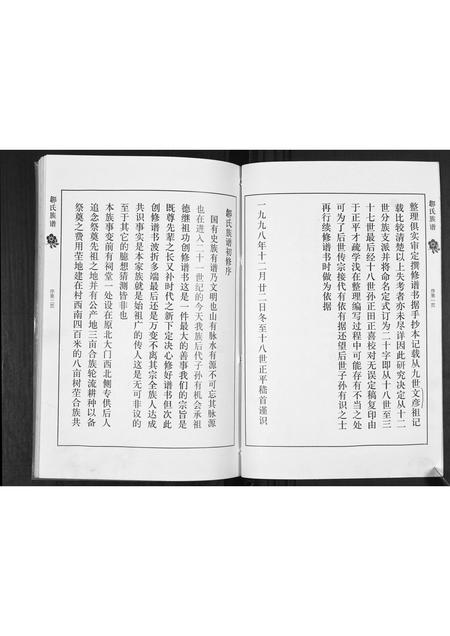 氏族谱
整理俱实审定撰修谱书据手抄本记载从九世文彦祖记
载比较清楚以上失考者亦未尽详因此研究决定从十二
世分族支派并将命名定式订为二十字即从十八世至三
十七世最后经十八世孙正田正喜校对无误定稿复印由
于正平才疏学浅在整理编写过程中可能存有不当之处
可为了后世传宗接代有依有据还望后世子孙有识之士
再行续修谱书时做为依据
一九九八年十二月廿二日冬至十八世正平嵇首谨识
氏族谱初修序
国有史族有谱乃文明也山有脉水有源不可忘其脉源
也在进入二十一世纪的今天我族后代子孙有机会承祖
德继祖功创修谱书这是一件最大的善事我们的宗旨是
既尊先辈之长又补时代之新下定决心修好谱书但次此
创修谱书波折多端最后还是万变不离其宗全族人达成
共识事实是本家族就是始祖广的传人这是无可非议的
至于其它的臆想猜测皆非也
本族事变前有祠堂一处设在原北大门西北侧专供后人
追念祭奠先祖之地并有公产地三亩合族轮流耕种以备
祭奠之费用茔地建在村西南四百米的八亩树茔合族共
氏族谱